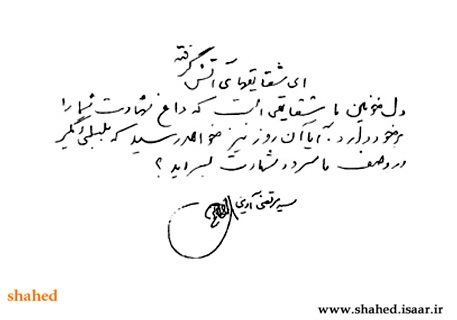 ای شقایقهای آتش گرفته
دل خونین ما شقایقی است که داغ شهادت شما را
بر خود دارد. آیا آن روز نیز خواهد رسید که بلبلی دیگر
در وصف ما سرود شهادت بسراید ؟
سید مرتضی آوینی
shahed
www.shahed.isaar.ir